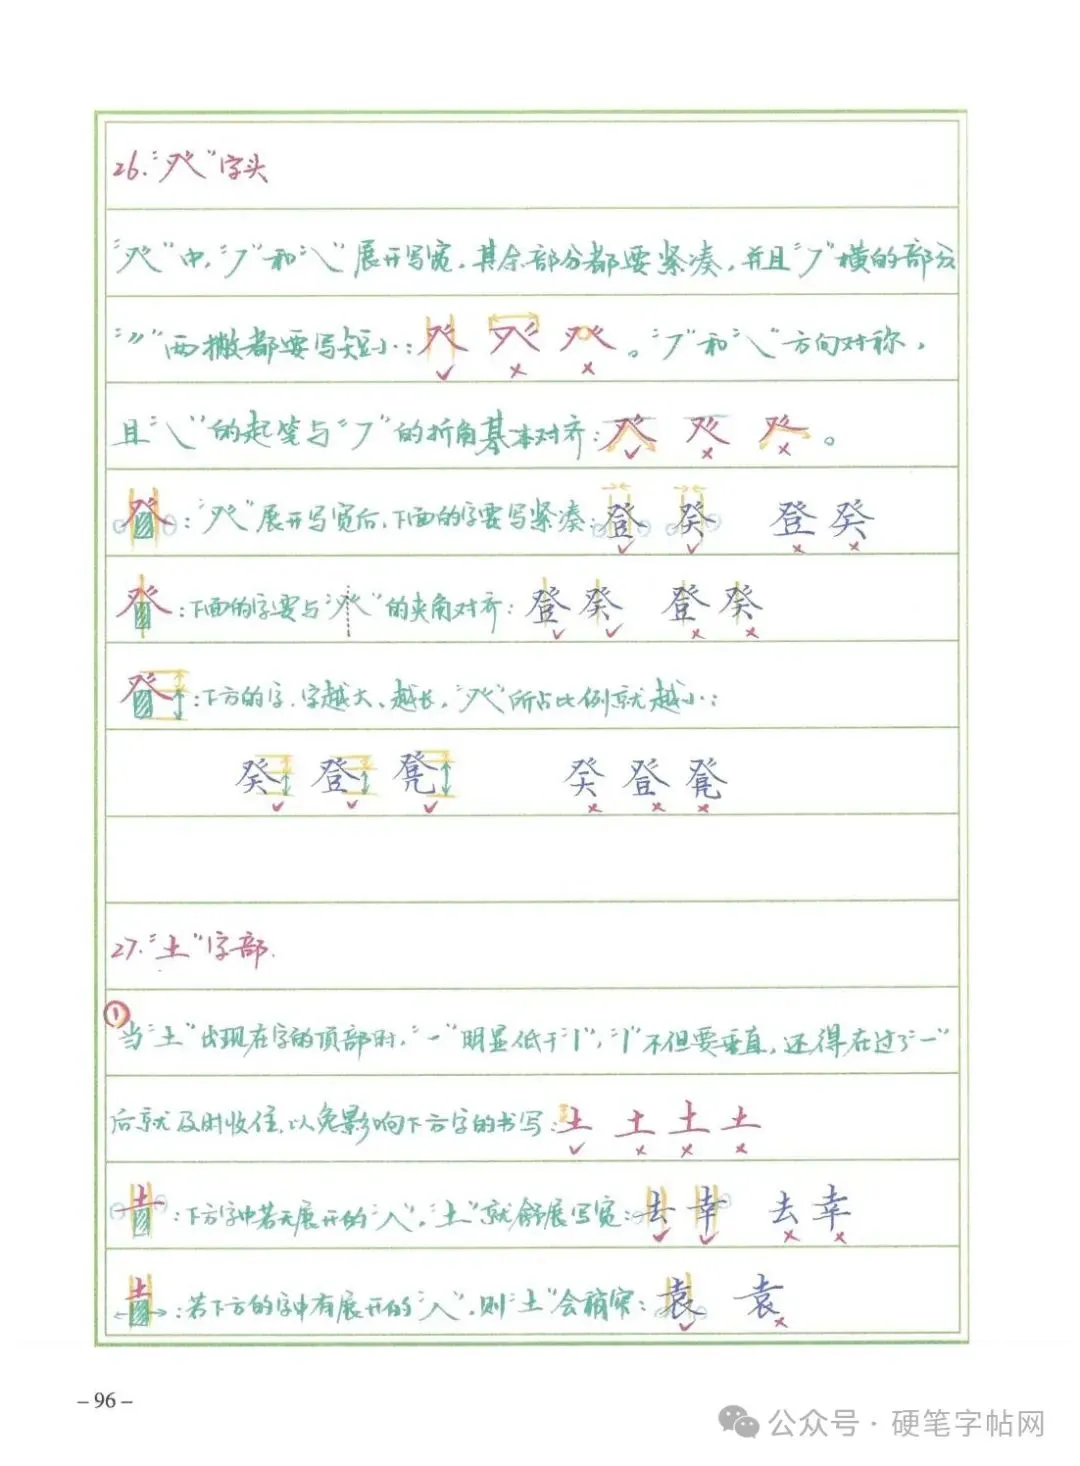 26.“癶”字头
“癶”中,“㇇”和“㇏”展开写宽,其余部分都要紧凑,并且“㇇”横的部分
“〃”两撇都要写短小:癶 癶 癶。“㇇”和“㇏”方向对称,
且“㇏”的起笔与“㇇”的折角基本对齐:癶 癶 癶。
癶:“癶”展开写宽后,下面的字要写紧凑:登 癸 登 癸
癶:下面的字要与“癶”的夹角对齐:登 癸 登 癸
癶:下方的字,字越大、越长,“癶”所占比例就越小:
癸 登 凳 癸 登 凳
27.“土”字部.
①当“土”出现在字的顶部时,“一”明显低于“丨”,“丨”不但要垂直,还得在过了“一”
后就及时收住,以免影响下方字的书写:土 土 土 土
土:下方字中若无展开的“八”,“土”就舒展写宽:去 幸 去 幸
土:若下方的字中有展开的“八”,则“土”会稍窄:袁 袁
–96–
公众号·硬笔字帖网